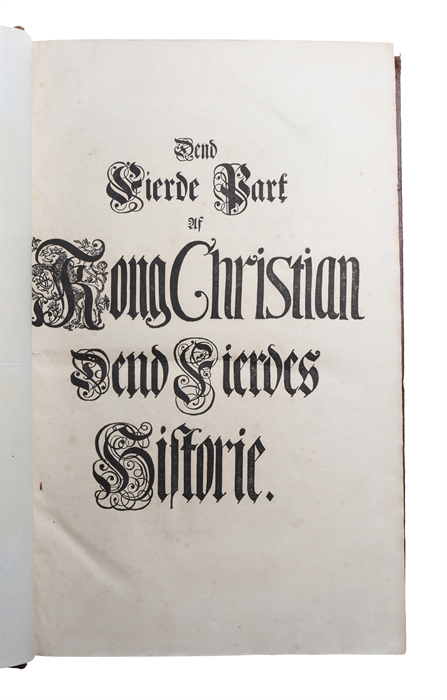 Dend
Fierde Part
Af
Kong Christian
Dend Fierdes
Hiſtorie.